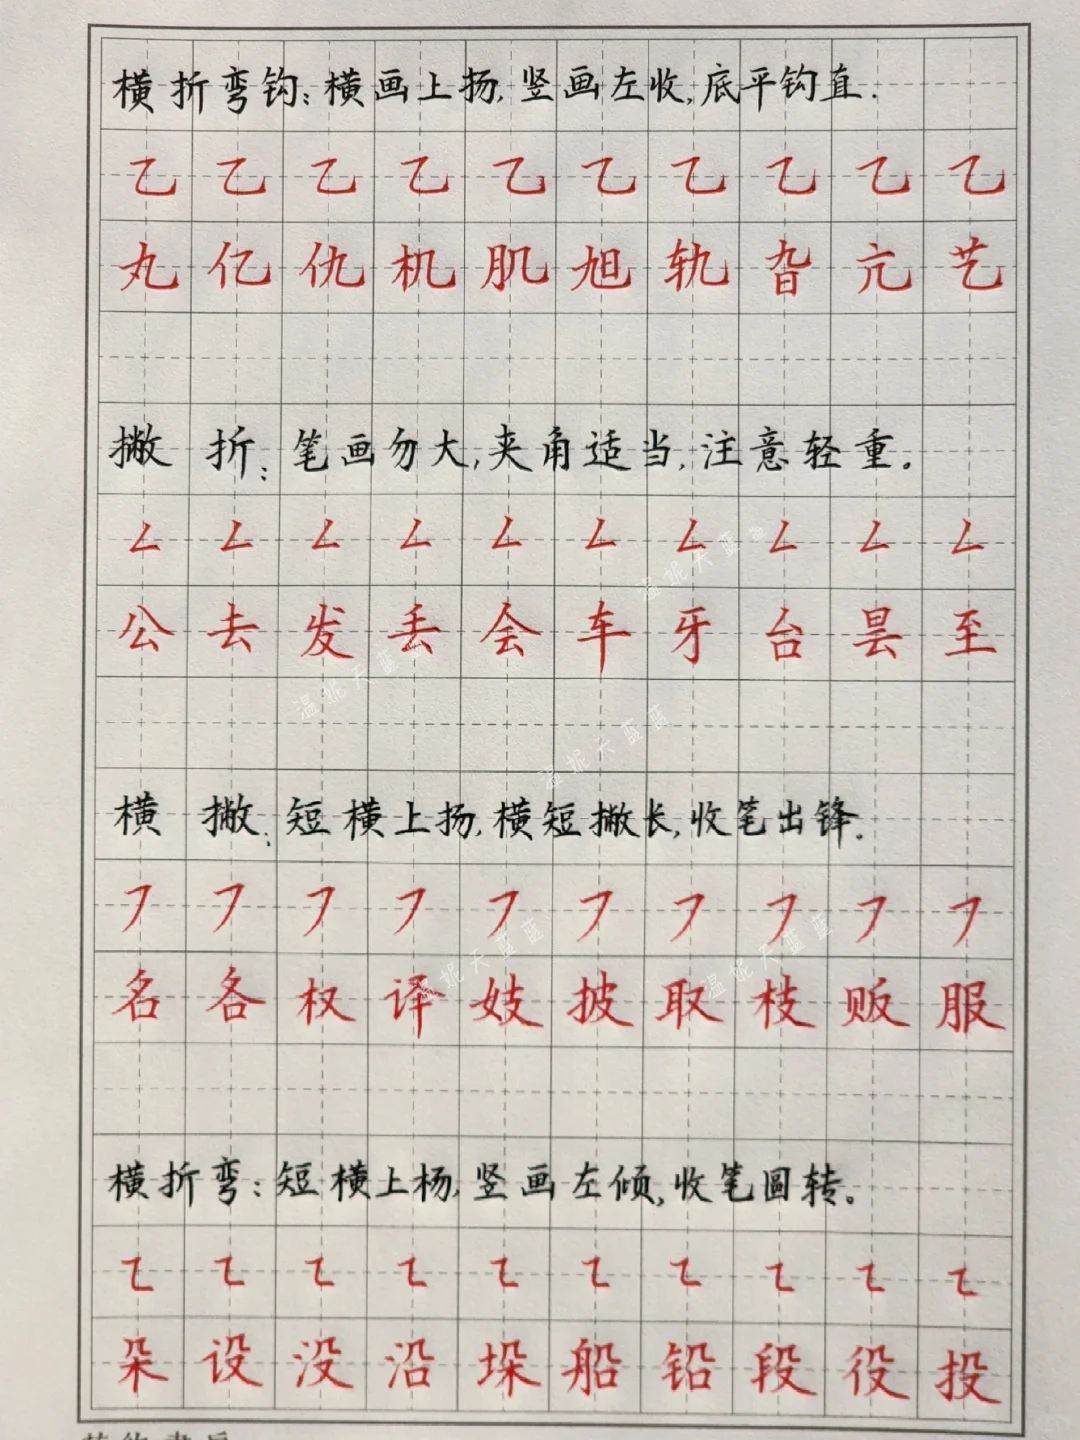 横折弯钩：横画上扬，竖画左收，底平钩直．
乙乙乙乙乙乙乙乙乙乙
丸亿仇机肌旭轨旮亢艺
撇折：笔画勿大，夹角适当，注意轻重。
𠃋𠃋𠃋𠃋𠃋𠃋𠃋𠃋𠃋𠃋
公去发丢会车牙台昙至
横撇：短横上扬，横短撇长，收笔出锋．
㇇㇇㇇㇇㇇㇇㇇㇇㇇㇇
名各权译妓披取枝贩服
横折弯：短横上杨，竖画左倾，收笔圆转。
㇍㇍㇍㇍㇍㇍㇍㇍㇍㇍
朵设没沿垛船铅段役投
温妮天蓝蓝